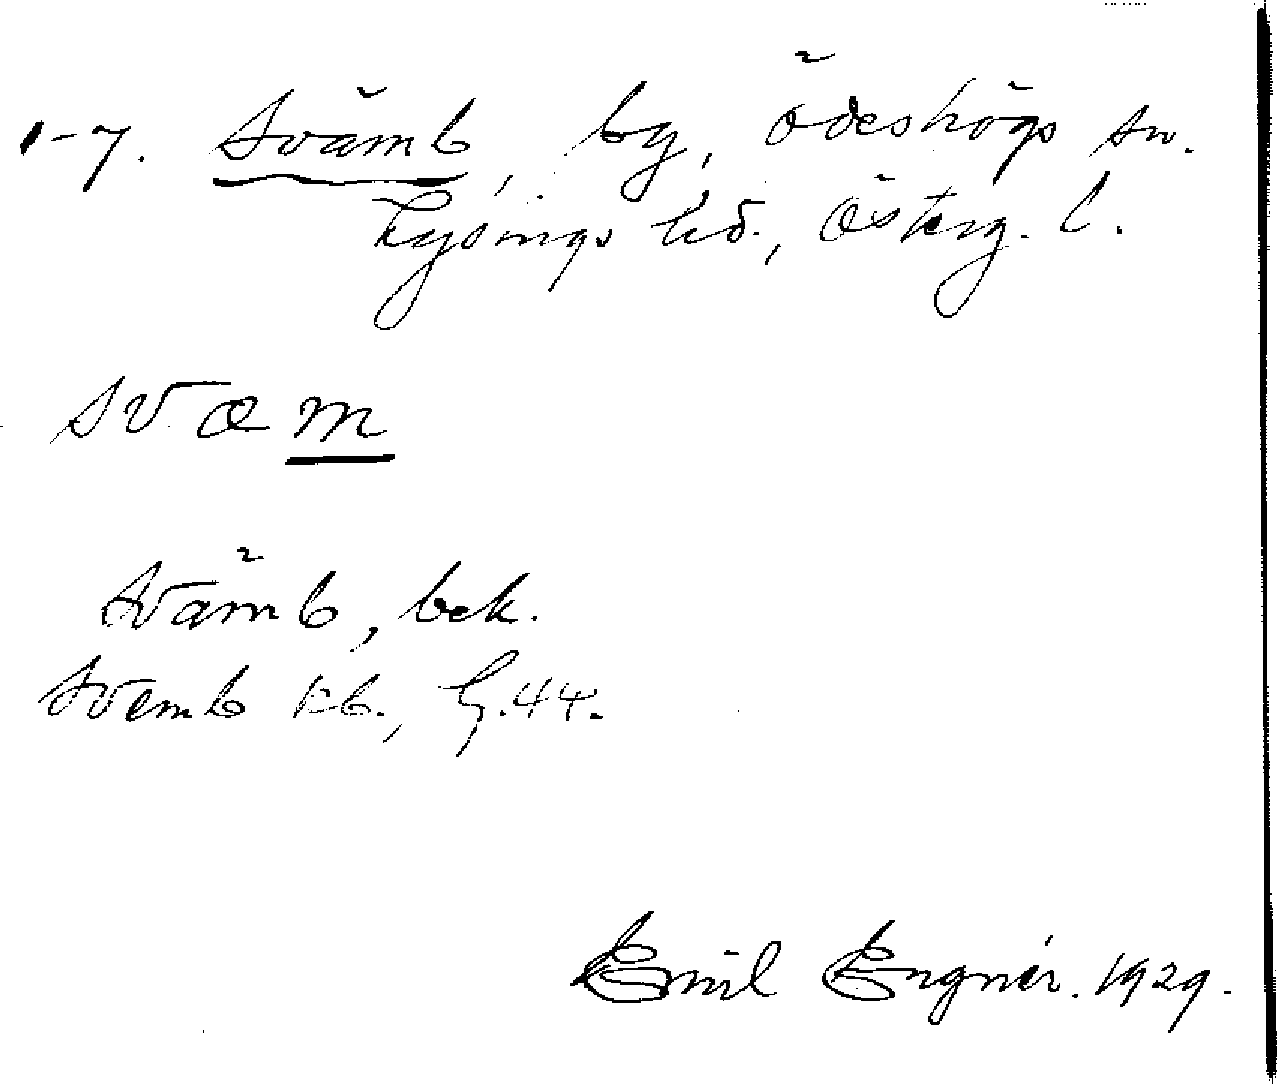 1-7. Svämb, by, Ödeshögs sn.
Lysings hd., Österg. l.
svæm
Svämb, bek.
Svemb kb., G.44.
Emil Engnér. 1929.